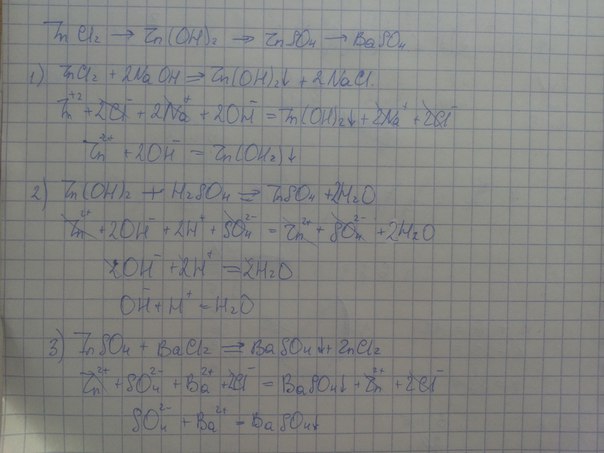 ZnCl₂ → Zn(OH)₂ → ZnSO₄ → BaSO₄
1) ZnCl₂ + 2NaOH = Zn(OH)₂↓ + 2NaCl.
Zn⁺² + 2Cl⁻ + 2Na⁺ + 2OH⁻ = Zn(OH)₂↓ + 2Na⁺ + 2Cl⁻
Zn²⁺ + 2OH⁻ = Zn(OH₂)↓
2) Zn(OH)₂ + H₂SO₄ = ZnSO₄ + 2H₂O
Zn²⁺ + 2OH⁻ + 2H⁺ + SO₄²⁻ = Zn²⁺ + SO₄²⁻ + 2H₂O
2OH⁻ + 2H⁺ = 2H₂O
OH⁻ + H⁺ = H₂O
3) ZnSO₄ + BaCl₂ = BaSO₄↓ + ZnCl₂
Zn²⁺ + SO₄²⁻ + Ba²⁺ + 2Cl⁻ = BaSO₄↓ + Zn²⁺ + 2Cl⁻
SO₄²⁻ + Ba²⁺ = BaSO₄↓